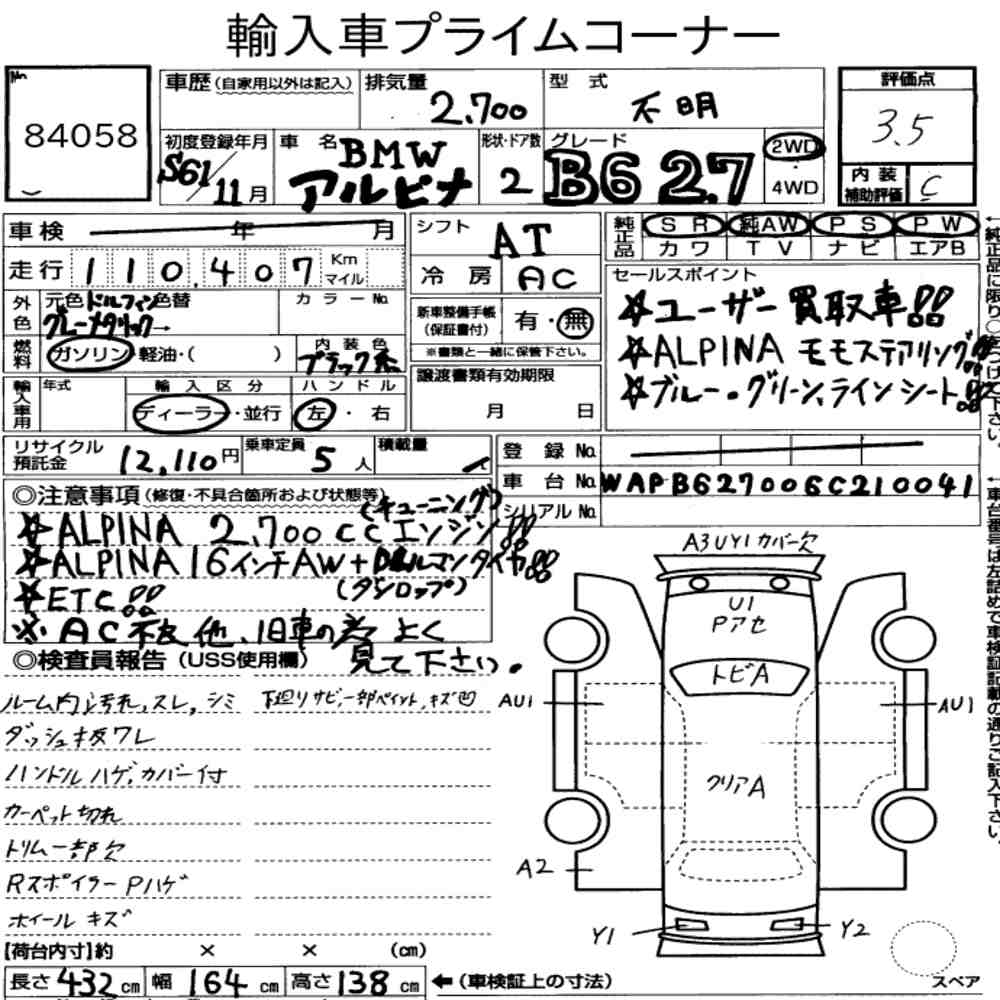 輸入車プライムコーナー
No.
84058
車歴 (自家用以外は記入)
排気量
2.700
型式
不明
評価点
3.5
内装
補助評価
C
初度登録年月
S61/11月
車名
BMW
アルピナ
形状・ドア数
2
グレード
B6 2.7
2WD
4WD
車検 年 月
走行 110,407 Km
マイル
外色
元色 ドルフィン 色替
グレーメタリック→
カラーNo.
燃料
ガソリン・軽油・( )
内装色
ブラック系
輸入車用
年式
輸入区分
ディーラー・並行
ハンドル
左・右
シフト
AT
冷房
AC
新車整備手帳
(保証書付)
有・無
※書類と一緒に保管下さい。
譲渡書類有効期限
月 日
純正品
SR 純AW PS PW
カワ TV ナビ エアB
セールスポイント
☆ユーザー買取車!!
☆ALPINA モモステアリング!!
☆ブルー・グリーンラインシート!!
←純正品に限り○をつけて下さい。
リサイクル
預託金
12,110円
乗車定員
5人
積載量
登録No.
車台No.
WAPB627006C210041
シリアルNo.
←車台番号は左詰めで車検証記載の通りご記入下さい。
◎注意事項 (修復・不具合箇所および状態等)
(チューニング)
☆ALPINA 2,700cc エンジン!!
☆ALPINA 16インチAW+ タイヤ!!
(ダンロップ)
☆ETC!!
※AC不良他、旧車の為よく
見て下さい。
◎検査員報告 (USS使用欄)
ルーム内汚れ,スレ,シミ
下廻りサビ,一部ペイント,キズ凹
ダッシュ板ワレ
ハンドルハゲ,カバー付
カーペット切れ
トリム一部欠
Rスポイラー Pハゲ
ホイールキズ
A3UY1カバー欠
U1
Pアセ
トビA
AU1
AU1
クリアA
A2
Y1
Y2
スペア
【荷台内寸】約 × × (cm)
長さ 432 cm 幅 164 cm 高さ 138 cm
←(車検証上の寸法)